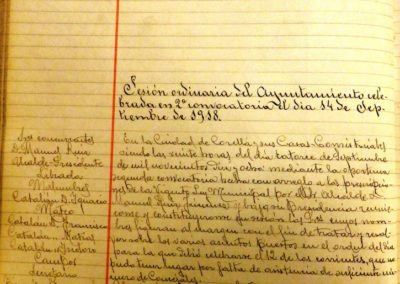 Sesión ordinaria del Ayuntamiento cele-
brada en 2ª convocatoria el dia 14 de Sep-
tiembre de 1918.
Sres concurrentes
D. Manuel Ruiz
Alcalde-Presidente
Librada
Malumbres
Catalán D. Ignacio
Mateo
Catalán D. Francisco
Catalán D. Matías
Cataldo Isidoro
Campos
Secretario
En la Ciudad de Corella y sus Casas Consistoriales
siendo las veinte horas del día catorce de Septiembre
de mil novecientos diez y ocho mediante la oportuna
segunda convocatoria hecha con arreglo a los preceptos
de la vigente Ley Municipal por el Sr. Alcalde D.
Manuel Ruiz Jimenez y bajo su presidencia reunié-
ronse y constituyeronse en sesión los Sres cuyos nom-
bres figuran al margen con el fin de tratar y resol-
ver sobre los varios asuntos puestos en el orden del día
para la que debió celebrarse el 12 de los corrientes, que no
pudo tener lugar por falta de asistencia de suficiente nú-
mero de Concejales.